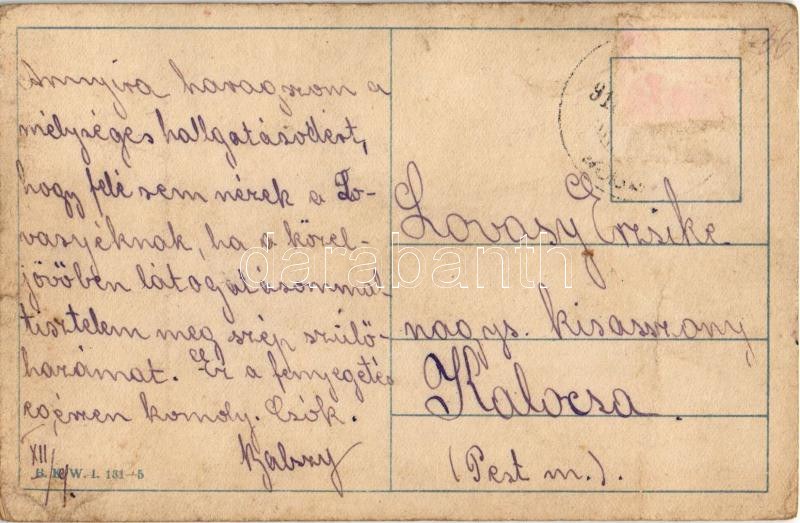 Annyira haragszom a
mélységes hallgatásodért,
hogy felé sem nézek a Lo-
vasyéknak, ha a közel-
jövőben látogatásommal
tisztelem meg szép szülő-
hazámat. Ez a fenyegetés
egészen komoly. Csók.
XII/9.
B. K. W. I. 131-5
Lovasy Erzsike
nagys. kisasszony
Kalocsa.
(Pest m.).
darabanth